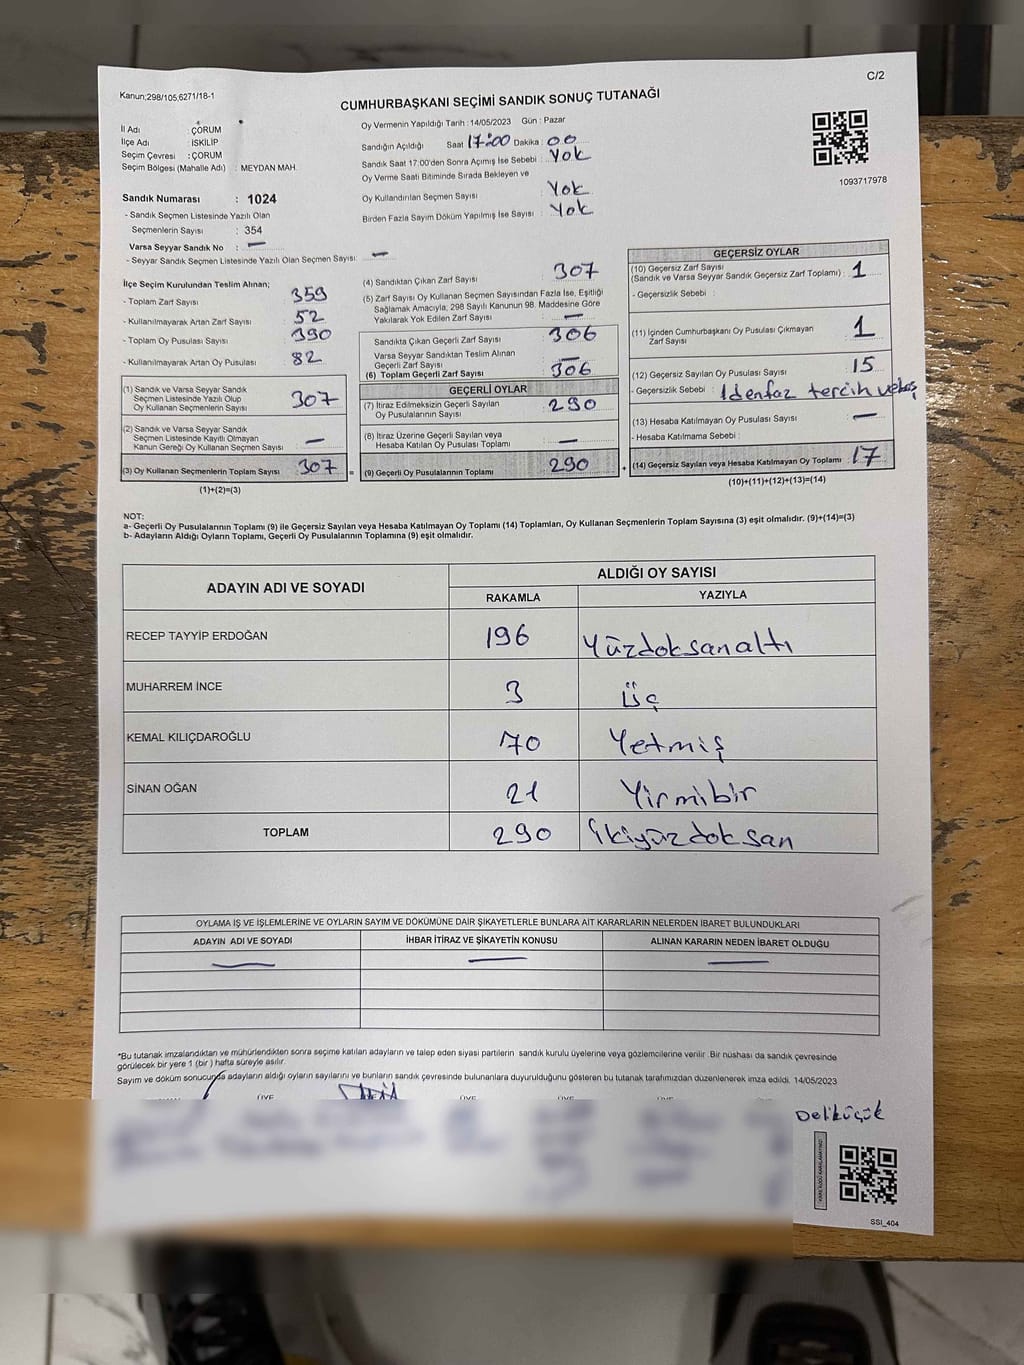 C/2
Kanun;298/105,6271/18-1
CUMHURBAŞKANI SEÇİMİ SANDIK SONUÇ TUTANAĞI
İl Adı : ÇORUM
İlçe Adı : İSKİLİP
Seçim Çevresi : ÇORUM
Seçim Bölgesi (Mahalle Adı) : MEYDAN MAH.
Oy Vermenin Yapıldığı Tarih : 14/05/2023 Gün : Pazar
Sandığın Açıldığı Saat 17:00 Dakika : 00
Sandık Saat 17:00'den Sonra Açımış İse Sebebi : Yok
Oy Verme Saati Bitiminde Sırada Bekleyen ve
Oy Kullandırılan Seçmen Sayısı : Yok
Birden Fazla Sayım Döküm Yapılmış İse Sayısı : Yok
1093717978
Sandık Numarası : 1024
- Sandık Seçmen Listesinde Yazılı Olan
Seçmenlerin Sayısı : 354
Varsa Seyyar Sandık No : —
- Seyyar Sandık Seçmen Listesinde Yazılı Olan Seçmen Sayısı: —
İlçe Seçim Kurulundan Teslim Alınan;
- Toplam Zarf Sayısı : 359
- Kullanılmayarak Artan Zarf Sayısı : 52
- Toplam Oy Pusulası Sayısı : 390
- Kullanılmayarak Artan Oy Pusulası : 82
(1) Sandık ve Varsa Seyyar Sandık
Seçmen Listesinde Yazılı Olup
Oy Kullanan Seçmenlerin Sayısı : 307
(2) Sandık ve Varsa Seyyar Sandık
Seçmen Listesinde Kayıtlı Olmayan
Kanun Gereği Oy Kullanan Seçmen Sayısı : —
(3) Oy Kullanan Seçmenlerin Toplam Sayısı : 307 =
(1)+(2)=(3)
(4) Sandıktan Çıkan Zarf Sayısı : 307
(5) Zarf Sayısı Oy Kullanan Seçmen Sayısından Fazla İse, Eşitliği
Sağlamak Amacıyla, 298 Sayılı Kanunun 98. Maddesine Göre
Yakılarak Yok Edilen Zarf Sayısı : —
Sandıkta Çıkan Geçerli Zarf Sayısı : 306
Varsa Seyyar Sandıktan Teslim Alınan
Geçerli Zarf Sayısı : —
(6) Toplam Geçerli Zarf Sayısı : 306
GEÇERLİ OYLAR
(7) İtiraz Edilmeksizin Geçerli Sayılan
Oy Pusulalarının Sayısı : 290
(8) İtiraz Üzerine Geçerli Sayılan veya
Hesaba Katılan Oy Pusulası Toplamı : —
(9) Geçerli Oy Pusulalarının Toplamı : 290 +
GEÇERSİZ OYLAR
(10) Geçersiz Zarf Sayısı
(Sandık ve Varsa Seyyar Sandık Geçersiz Zarf Toplamı) : 1
- Geçersizlik Sebebi :
(11) İçinden Cumhurbaşkanı Oy Pusulası Çıkmayan
Zarf Sayısı : 1
(12) Geçersiz Sayılan Oy Pusulası Sayısı : 15
- Geçersizlik Sebebi : 1 denfaz tercih ve boş
(13) Hesaba Katılmayan Oy Pusulası Sayısı : —
- Hesaba Katılmama Sebebi :
(14) Geçersiz Sayılan veya Hesaba Katılmayan Oy Toplamı : 17
(10)+(11)+(12)+(13)=(14)
NOT:
a- Geçerli Oy Pusulalarının Toplamı (9) ile Geçersiz Sayılan veya Hesaba Katılmayan Oy Toplamı (14) Toplamları, Oy Kullanan Seçmenlerin Toplam Sayısına (3) eşit olmalıdır. (9)+(14)=(3)
b- Adayların Aldığı Oyların Toplamı, Geçerli Oy Pusulalarının Toplamına (9) eşit olmalıdır.
ADAYIN ADI VE SOYADI ALDIĞI OY SAYISI
RAKAMLA YAZIYLA
RECEP TAYYİP ERDOĞAN 196 Yüzdoksanaltı
MUHARREM İNCE 3 Üç
KEMAL KILIÇDAROĞLU 70 Yetmiş
SİNAN OĞAN 21 Yirmibir
TOPLAM 290 İkiyüzdoksan
OYLAMA İŞ VE İŞLEMLERİNE VE OYLARIN SAYIM VE DÖKÜMÜNE DAİR ŞİKAYETLERLE BUNLARA AİT KARARLARIN NELERDEN İBARET BULUNDUKLARI
ADAYIN ADI VE SOYADI İHBAR İTİRAZ VE ŞİKAYETİN KONUSU ALINAN KARARIN NEDEN İBARET OLDUĞU
— — —
*Bu tutanak imzalandıktan ve mühürlendikten sonra seçime katılan adayların ve talep eden siyasi partilerin sandık kurulu üyelerine veya gözlemcilerine verilir. Bir nüshası da sandık çevresinde
görülecek bir yere 1 (bir ) hafta süreyle asılır.
Sayım ve döküm sonucunda adayların aldığı oyların sayılarını ve bunların sandık çevresinde bulunanlara duyurulduğunu gösteren bu tutanak tarafımızdan düzenlenerek imza edildi. 14/05/2023
ÜYE ÜYE ÜYE
Deliküçük
SSI_404